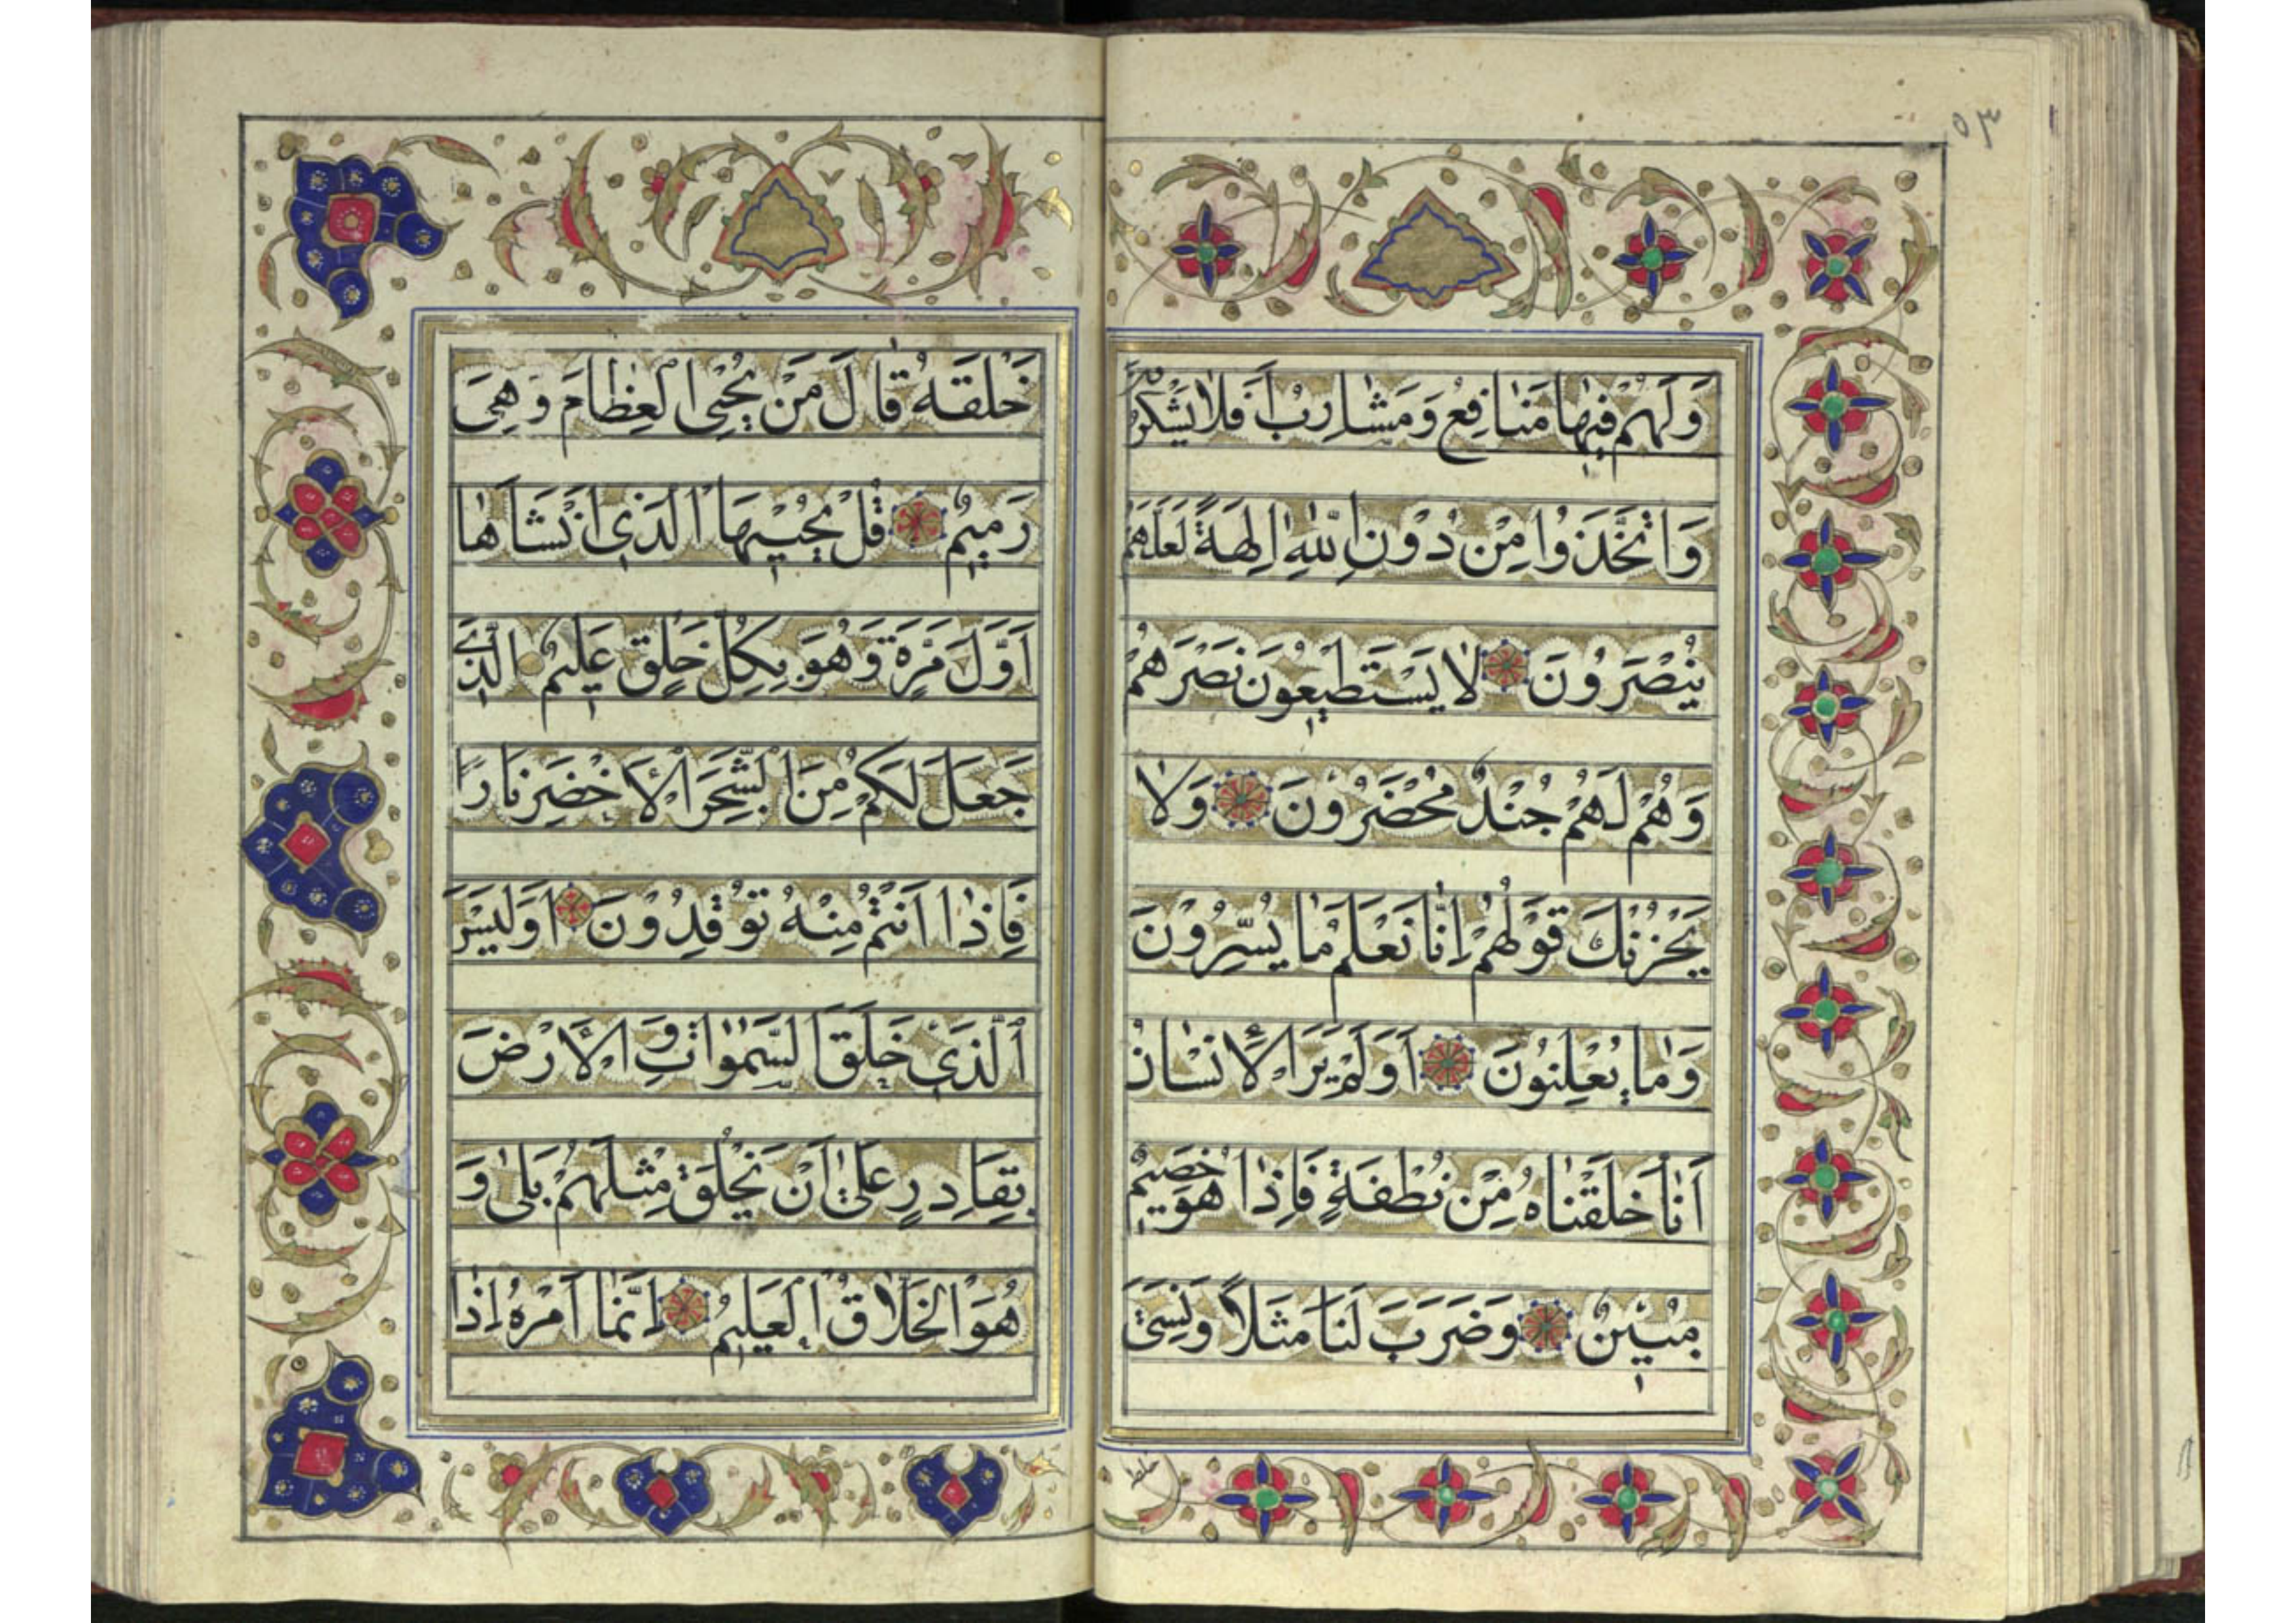 ٥٣
وَلَهُمْ فيٖها مَنٰافِعُ وَمَشٰارِبُ اَفَلاٰ يَشْكُرُونَ
وَاتَّخَذُوا مِنْ دُونِ اللّٰهِ اٰلِهَةً لَعَلَّهُمْ
يُنْصَرُونَ لاٰ يَسْتَطيٖعُونَ نَصْرَهُمْ
وَهُمْ لَهُمْ جُنْدٌ مُحْضَرُونَ وَلاٰ
يَحْزُنْكَ قَوْلُهُمْ اِنّٰا نَعْلَمُ مٰا يُسِرُّونَ
وَمٰا يُعْلِنُونَ اَوَلَمْ يَرَ الْاِنْسٰانُ
اَنّٰا خَلَقْنٰاهُ مِنْ نُطْفَةٍ فَاِذٰا هُوَ خَصيٖمٌ
مُبيٖنٌ وَضَرَبَ لَنٰا مَثَلاً وَنَسِىَ
خَلْقَهُ قٰالَ مَنْ يُحْيِى الْعِظٰامَ وَهِىَ
رَميٖمٌ قُلْ يُحْييٖهَا الَّذيٖ اَنْشَاَهٰا
اَوَّلَ مَرَّةٍ وَهُوَ بِكُلِّ خَلْقٍ عَليٖمٌ الَّذيٖ
جَعَلَ لَكُمْ مِنَ الشَّجَرِ الْاَخْضَرِ نَارًا
فَاِذٰا اَنْتُمْ مِنْهُ تُوقِدُونَ اَوَلَيْسَ
الَّذيٖ خَلَقَ السَّمٰوٰاتِ وَالْاَرْضَ
بِقَادِرٍ عَلىٰ اَنْ يَخْلُقَ مِثْلَهُمْ بَلىٰ وَ
هُوَ الْخَلّٰاقُ الْعَليٖمُ اِنَّمٰا اَمْرُهُ اِذٰا